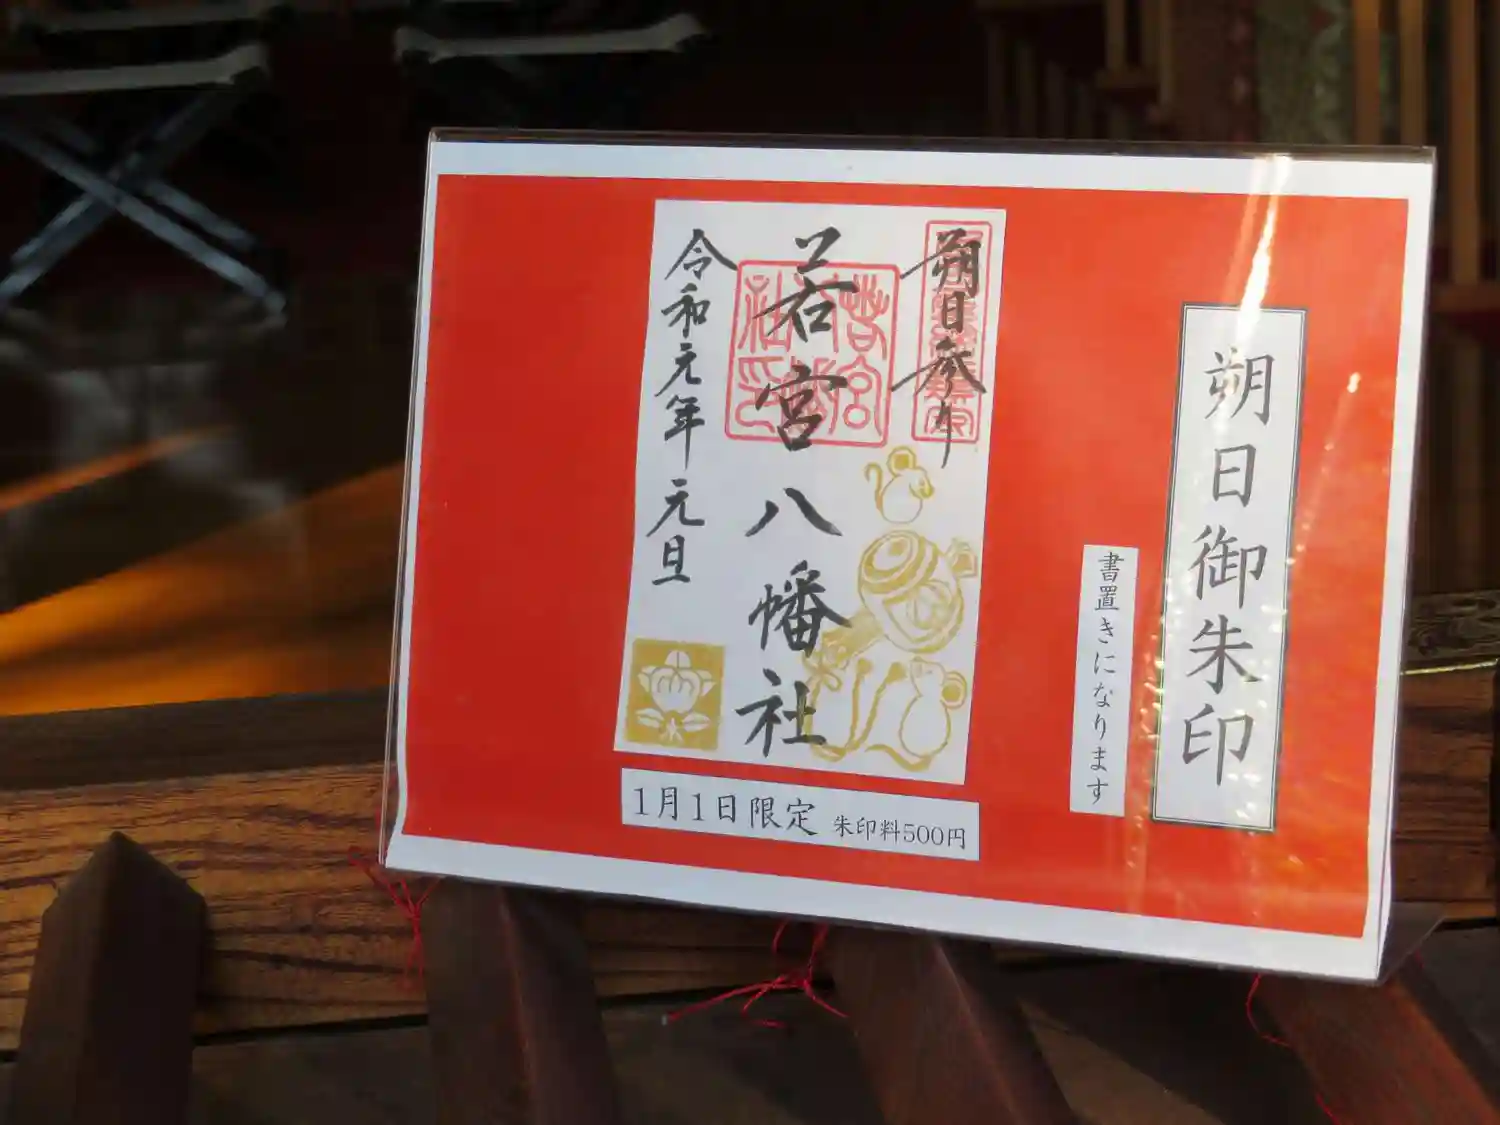 朔日御朱印
書置きになります
朔日参り
若宮八幡社
令和元年元旦
1月1日限定 朱印料500円